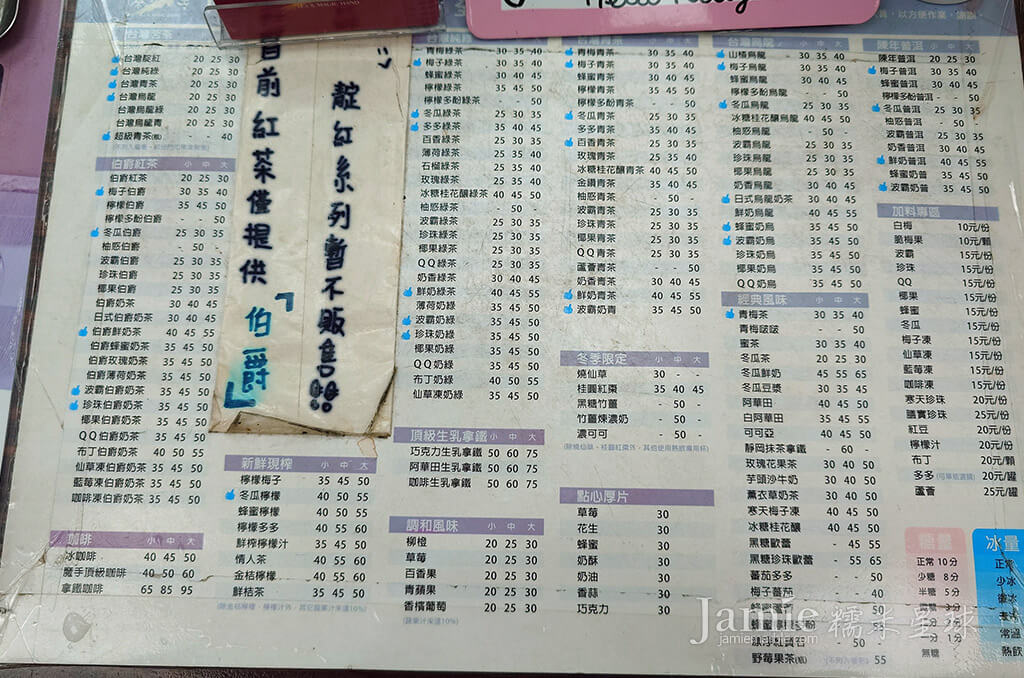 台灣茗茶
台灣靛紅 20 25 30
台灣純綠 20 25 30
台灣青茶 20 25 30
台灣烏龍 20 25 30
台灣烏龍綠 20 25 30
台灣烏龍青 20 25 30
超級青茶(瓶) - - 40
伯爵紅茶 小 中 大
伯爵紅茶 20 25 30
梅子伯爵 30 35 40
檸檬伯爵 35 45 50
檸檬多酚伯爵 - - 50
冬瓜伯爵 25 30 35
柚慼伯爵 - 50 -
波霸伯爵 25 30 35
珍珠伯爵 25 30 35
椰果伯爵 25 30 35
伯爵奶茶 30 40 45
日式伯爵奶茶 30 40 45
伯爵鮮奶茶 40 45 55
伯爵蜂蜜奶茶 35 45 50
伯爵玫瑰奶茶 35 45 50
伯爵薄荷奶茶 35 45 50
波霸伯爵奶茶 35 45 50
珍珠伯爵奶茶 35 45 50
椰果伯爵奶茶 35 45 50
QQ伯爵奶茶 35 45 50
布丁伯爵奶茶 40 50 55
仙草凍伯爵奶茶 35 45 50
藍莓凍伯爵奶茶 35 45 50
咖啡凍伯爵奶茶 35 45 50
咖啡 小 中 大
冰咖啡 40 45 50
魔手頂級咖啡 40 50 60
拿鐵咖啡 65 85 95
目前紅茶僅提供「伯爵」
靛紅系列暫不販售
新鮮現榨 小 中 大
檸檬梅子 35 45 50
冬瓜檸檬 40 50 50
蜂蜜檸檬 40 50 55
檸檬多多 40 55 60
鮮榨檸檬汁 35 45 50
情人茶 40 55 60
金桔檸檬 40 55 60
鮮桔茶 35 45 50
(除金桔檸檬、檸檬汁外，其它蔬果汁未達10%)
青梅綠茶 30 35 40
梅子綠茶 30 35 40
蜂蜜綠茶 30 40 45
檸檬綠茶 35 45 50
檸檬多酚綠茶 - - 50
冬瓜綠茶 25 30 35
多多綠茶 35 40 45
百香綠茶 25 30 35
薄荷綠茶 25 35 40
石榴綠茶 25 35 40
玫瑰綠茶 25 35 40
冰糖桂花釀綠茶 40 45 50
柚慼綠茶 - 50 -
波霸綠茶 25 30 35
珍珠綠茶 25 30 35
椰果綠茶 25 30 35
QQ綠茶 25 30 35
奶香綠茶 30 40 45
鮮奶綠茶 40 45 55
薄荷奶綠 35 45 50
波霸奶綠 35 45 50
珍珠奶綠 35 45 50
椰果奶綠 35 45 50
QQ奶綠 35 45 50
布丁奶綠 40 50 55
仙草凍奶綠 35 45 50
頂級生乳拿鐵 小 中 大
巧克力生乳拿鐵 50 60 75
阿華田生乳拿鐵 50 60 75
咖啡生乳拿鐵 50 60 75
調和風味 小 中 大
柳橙 20 25 30
草莓 20 25 30
百香果 20 25 30
青蘋果 20 25 30
香檳葡萄 20 25 30
(蔬果汁未達10%)
青梅青茶 30 35 40
梅子青茶 30 35 40
蜂蜜青茶 30 40 45
檸檬青茶 35 45 50
檸檬多酚青茶 - - 50
冬瓜青茶 25 30 35
多多青茶 35 40 45
百香青茶 25 30 35
玫瑰青茶 25 35 40
冰糖桂花釀青茶 40 45 50
金鑽青茶 35 40 45
柚慼青茶 - 50 -
波霸青茶 25 30 35
珍珠青茶 25 30 35
椰果青茶 25 30 35
QQ青茶 25 30 35
蘆薈青茶 - - 50
奶香青茶 30 40 45
鮮奶青茶 40 45 55
波霸奶青 35 45 50
冬季限定 小 中 大
燒仙草 30 - -
桂圓紅棗 35 40 45
黑糖竹薑 - 50 -
竹薑煉濃奶 - 50 -
濃可可 - 50 -
(除燒仙草、桂圓紅棗外，其他使用熱飲專用杯)
點心厚片
草莓 30
花生 30
蜂蜜 30
奶酥 30
奶油 30
香蒜 30
巧克力 30
台灣烏龍 小 中 大
山楂烏龍 30 35 40
梅子烏龍 30 35 40
蜂蜜烏龍 30 40 45
檸檬多酚烏龍 - - 50
冬瓜烏龍 25 30 35
冰糖桂花釀烏龍 40 45 50
柚慼烏龍 - 50 -
波霸烏龍 25 30 35
珍珠烏龍 25 30 35
椰果烏龍 25 30 35
奶香烏龍 30 40 45
日式烏龍奶茶 30 40 45
鮮奶烏龍 40 45 55
蜂蜜奶烏 35 45 50
波霸奶烏 35 45 50
珍珠奶烏 35 45 50
椰果奶烏 35 45 50
QQ奶烏 35 45 50
經典風味 小 中 大
青梅茶 30 35 40
青梅啵啵 - - 50
蜜茶 30 35 40
冬瓜茶 20 25 30
冬瓜鮮奶 45 55 65
冬瓜豆漿 30 35 45
阿華田 40 45 50
白阿華田 35 45 55
可可亞 40 45 50
靜岡抹茶拿鐵 - 60 -
玫瑰花果茶 30 40 50
芋頭沙牛奶 30 40 50
薰衣草奶茶 30 40 50
寒天梅子凍 40 45 50
冰糖桂花釀 40 45 50
黑糖歐蕾 - 45 55
黑糖珍珠歐蕾 - 55 65
蕃茄多多 - - 50
梅子蕃茄 - - 40
野莓果茶(瓶) 55
陳年普洱 小 中 大
陳年普洱 20 25 30
梅子普洱 30 35 40
蜂蜜普洱 30 35 40
檸檬多酚普洱 - - 50
柚慼普洱 - 50 -
波霸普洱 25 30 35
奶香普洱 30 40 45
鮮奶普洱 40 45 55
蜂蜜奶普 35 45 50
波霸奶普 35 45 50
加料專區
白梅 10元/份
脆梅果 10元/顆
波霸 15元/份
珍珠 15元/份
QQ 15元/份
椰果 15元/份
蜂蜜 15元/份
冬瓜 15元/份
梅子凍 15元/份
仙草凍 15元/份
藍莓凍 15元/份
咖啡凍 15元/份
寒天珍珠 20元/份
膳寶珍珠 25元/份
紅豆 20元/份
檸檬汁 20元/份
布丁 20元/顆
多多 20元/罐
蘆薈 25元/罐
糖量
正常 10分
少糖 8分
半糖 5分
無糖
冰量
正常
少冰
微冰
常溫
熱飲
Jamie 糯米里球